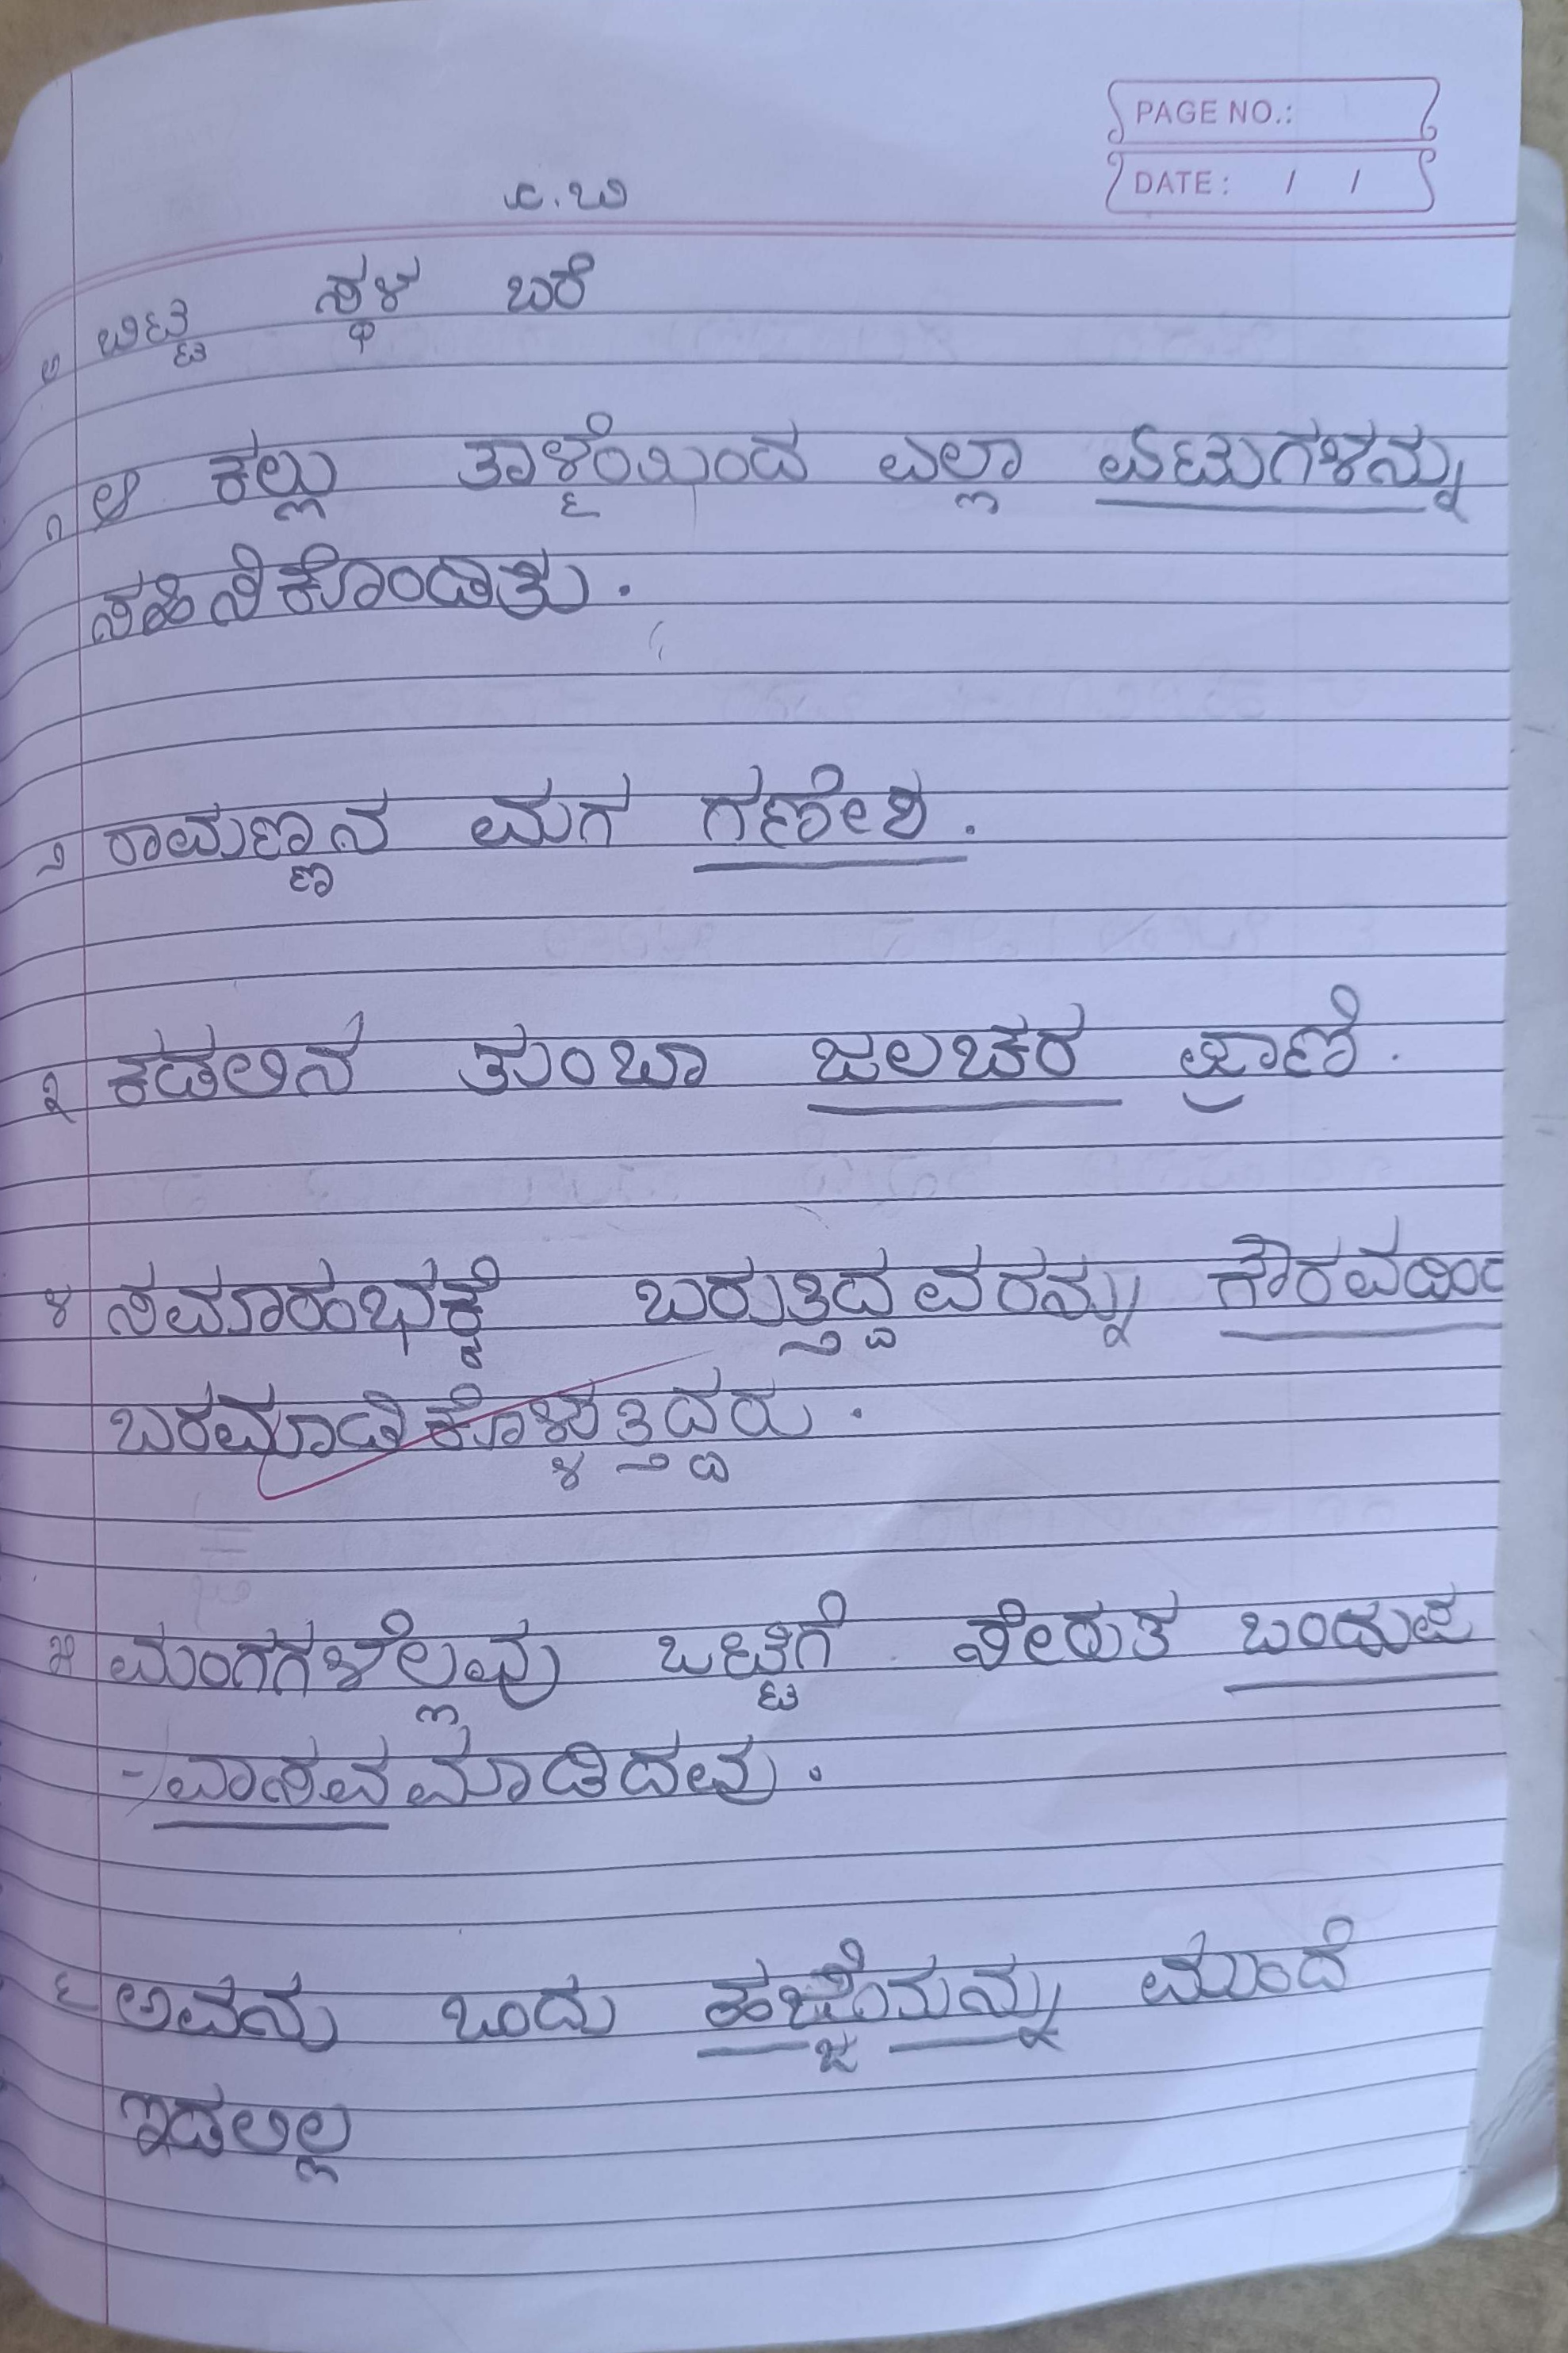 PAGE NO.:
DATE: / /
೮.೨
ಅ ಬಿಟ್ಟ ಸ್ಥಳ ಬರೆ
೧ ಆ ಕಲ್ಲು ತಾಳ್ಮೆಯಿಂದ ಎಲ್ಲಾ ಏಟುಗಳನ್ನು
ಸಹಿಸಿಕೊಂಡಿತು.
೨ ರಾಮಣ್ಣನ ಮಗ ಗಣೇಶ.
೩ ಕಡಲಿನ ತುಂಬಾ ಜಲಚರ ಪ್ರಾಣಿ.
೪ ಸಮಾರಂಭಕ್ಕೆ ಬರುತ್ತಿದ್ದವರನ್ನು ಗೌರವದಿಂದ
ಬರಮಾಡಿಕೊಳ್ಳುತ್ತಿದ್ದರು.
೫ ಮಂಗಗಳೆಲ್ಲವು ಒಟ್ಟಿಗೆ ಸೇರುತ ಒಂದುಪ
-ವಾಸವ ಮಾಡಿದವು.
೬ ಅವನು ಒಂದು ಹೆಜ್ಜೆಯನ್ನು ಮುಂದೆ
ಇಡಲಿಲ್ಲ